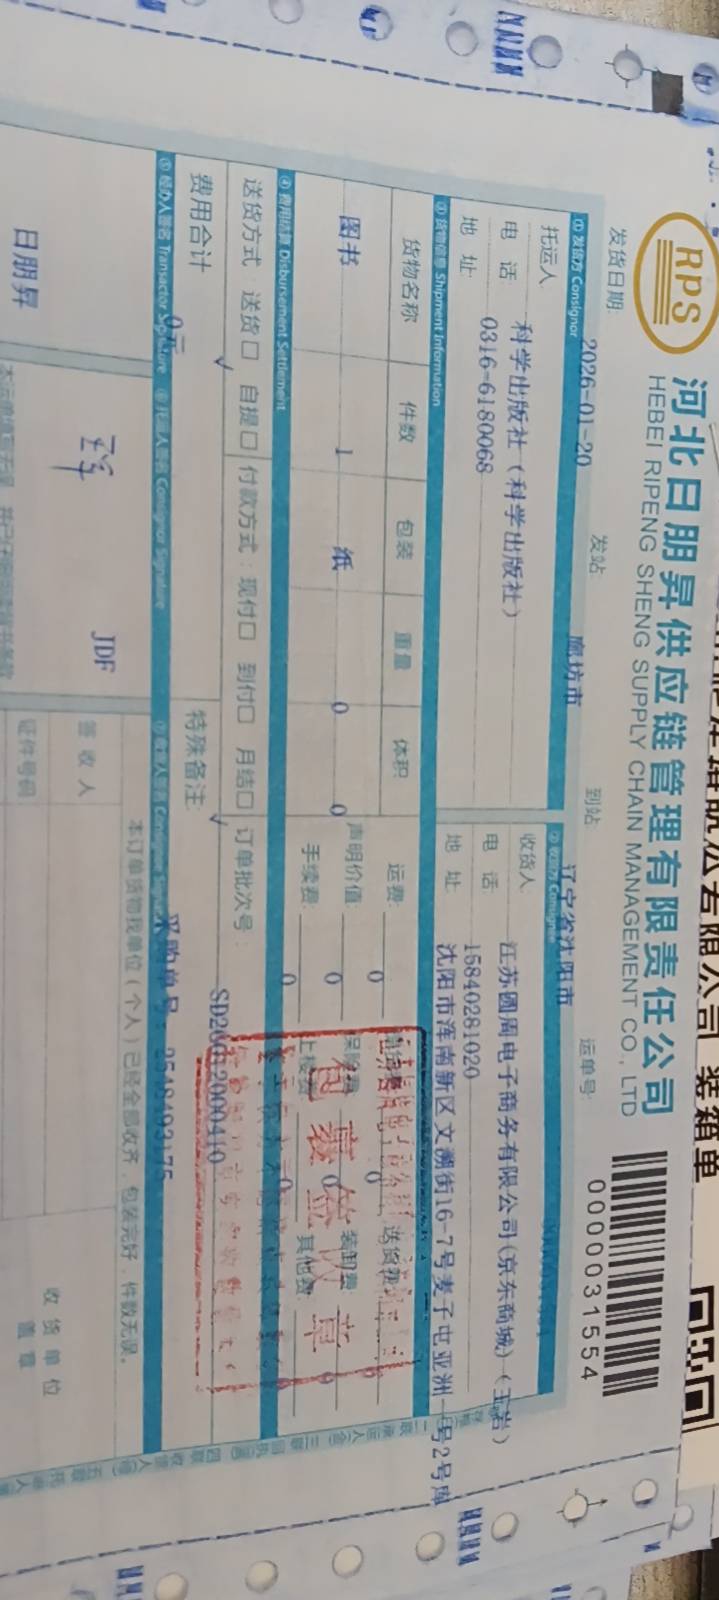 RPS
河北日朋昇供应链管理有限责任公司
HEBEI RIPENG SHENG SUPPLY CHAIN MANAGEMENT CO., LTD
装箱单
0000031554
发货日期: 2026-01-20 发站 廊坊市 到站 辽宁省沈阳市 运单号:
① 发货方 Consignor
托运人: 科学出版社(科学出版社)
电 话: 0316-6180068
地 址:
② 收货方 Consignee
收货人: 江苏圆周电子商务有限公司(京东商城)(王岩)
电 话: 15840281020
地 址: 沈阳市浑南新区文溯街16-7号麦子屯亚洲一号2号库
③ 货物信息 Shipment Information
货物名称 件数 包装 重量 体积
图书 1 纸 0 0
运费: 0 送货费:
声明价值: 0 保险费: 0 装卸费: 0
手续费: 0 上楼费: 0 其他费: 0
④ 费用结算 Disbursement Settlement
送货方式 送货□ 自提□ 付款方式: 现付□ 到付□ 月结□ 订单批次号:
√ √
费用合计 0元
特殊备注: 采购单号: 2548493175
⑤ 经办人签名 Transactor Signature ⑥ 托运人签名 Consignor Signature
日朋昇
JDF
本订单货物我单位(个人)已经全部收齐,包装完好,件数无误。
签收人
证件号码
收货单位
盖章
包装签收章